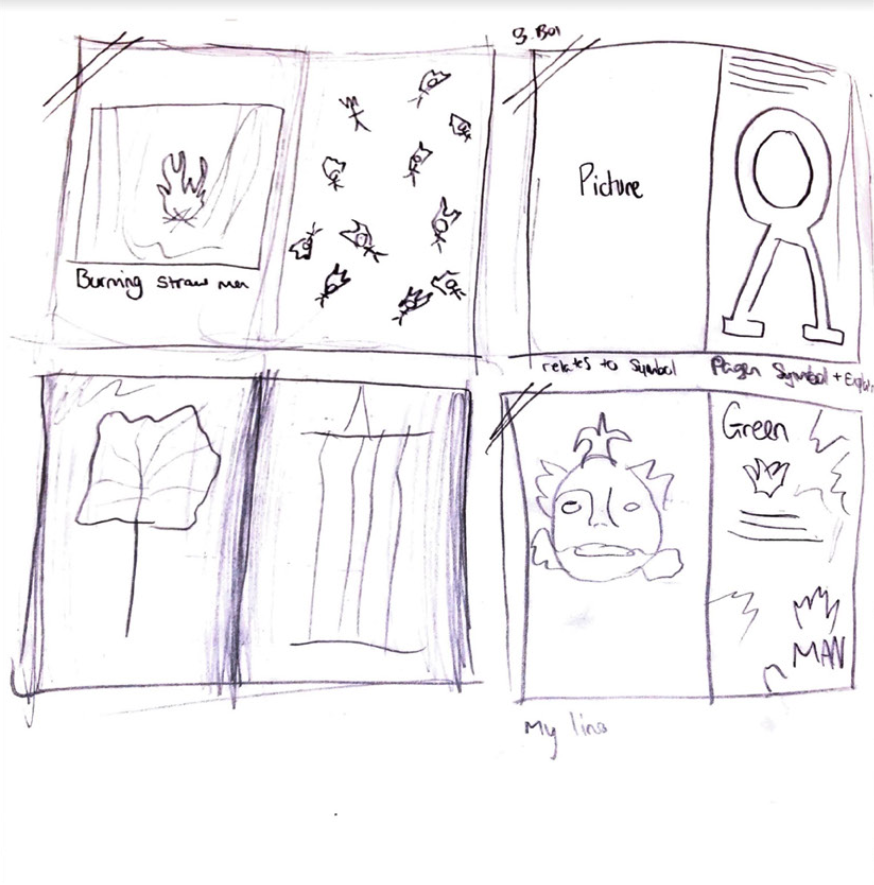 Burning straw men
Picture
relates to Symbol
Pagen Symbol +
Green
MAN
My lino